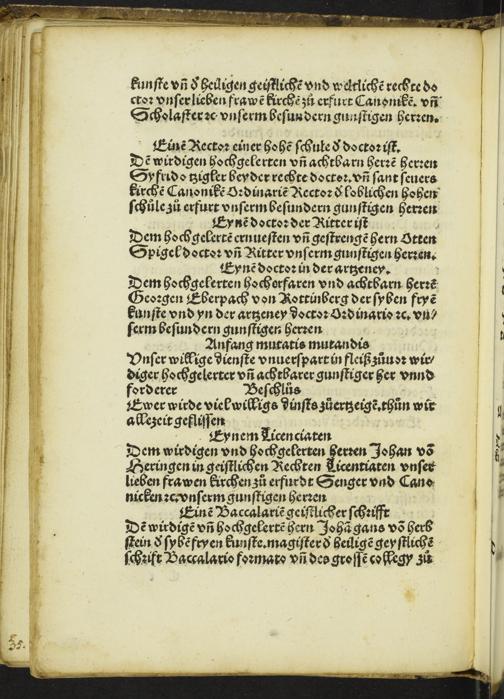 kunste vn̄ d̕ heiligen geistlichē vnd weltlichē rechte do
ctor vnser lieben frawē kirchē zů erfurt Canonikē. vn̄
Scholaster ꝛc vnserm besundern gunstigen herren.
Einē Rector einer hohē schule d̕ doctor ist.
Dē wirdigen hochgelerten vn̄ achtbarn herrē herren
Syfrido tzigler beyder rechte doctor. vn̄ sant seuers
kirchē Canonikē Ordinariē Rector d̕ loblichen hohen
schůle zů erfurt vnserm besundern gunstigen herren
Eynē doctor der Ritter ist
Dem hochgelertē ernuesten vn̄ gestrengē hern Otten
Spigel doctor vn̄ Ritter vnserm gunstigen herren.
Eynē doctor in der artzeney.
Dem hochgelerten hocherfaren vnd achtbarn herrē
Georgen Eberpach von Rottinberg der syben fryē
kunste vnd yn der artzeney doctor Ordinario ꝛc. vn̄/
serm besundern gunstigen herren
Anfang mutatis mutandis
Vnser willige dienste vnuerspart in fleiß zůuor wir/
diger hochgelerter vn̄ achtbarer gunstiger her vnnd
forderer Beschlüs
Ewer wirde viel willigs dinsts zůertzeigē, thůn wir
allezeit geflissen
Eynem Licenciaten
Dem wirdigen vnd hochgelerten herren Johan vō
Heringen in geistlichen Rechten Licentiaten vnser
lieben frawen kirchen zů erfurdt Senger vnd Cano
nicken ꝛc. vnserm gunstigen herren
Einē Baccalariē geistlicher schrifft
Dē wirdigē vn̄ hochgelertē hern Johā gans vō herb
stein d̕ sybē fryen kunste. magister d̕ heiligē geystlichē
schrift Baccalario formato vn̄ des grossē collegy zů
35.